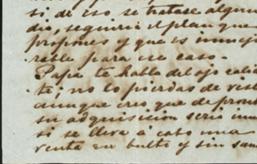 si de eso se tratase algun
dio, seguiria el plan que
propones y que es inmejo
rable para un caso.
Pepe te habla del ojo
te; no lo pierdas de vista
aunque creo que de pronto
su adquisicion seria
si se lleva á cabo una
venta en bulto y sin